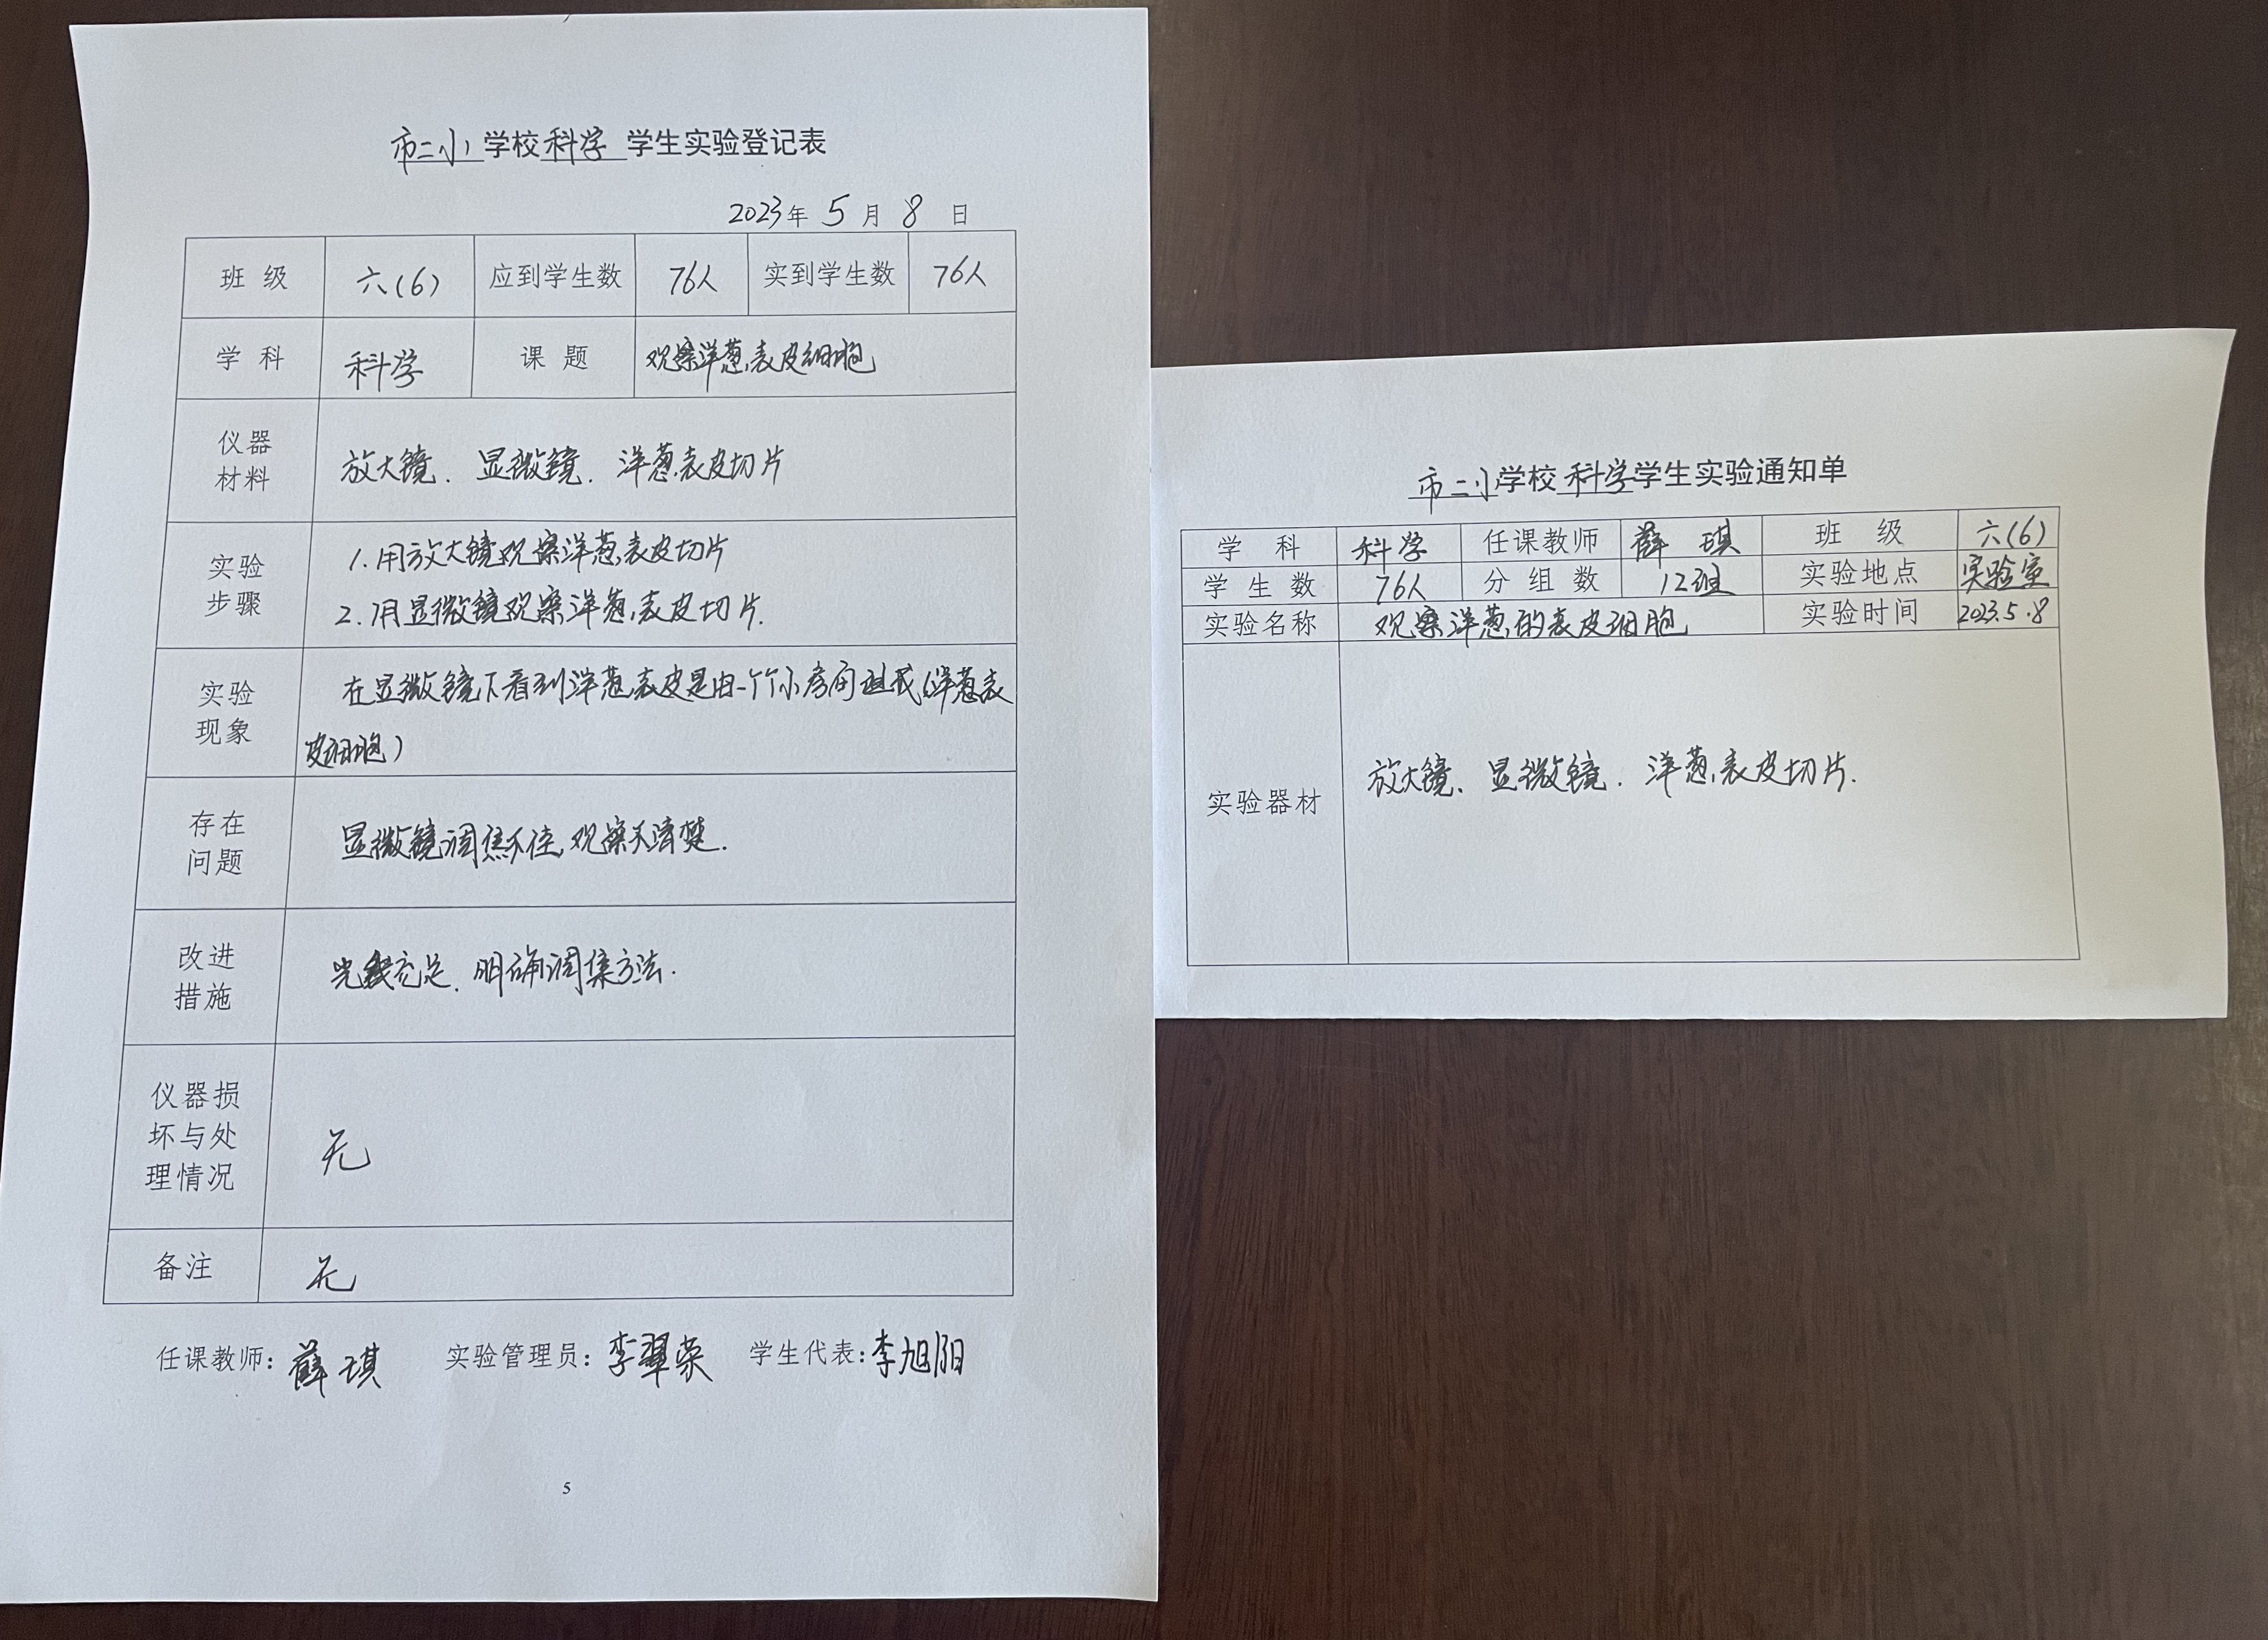 市二小学校科学 学生实验登记表
2023年 5 月 8 日
班 级 六(6) 应到学生数 76人 实到学生数 76人
学 科 科学 课 题 观察洋葱表皮细胞
仪器
材料
放大镜. 显微镜. 洋葱表皮切片
实验
步骤
1.用放大镜观察洋葱表皮切片
2.用显微镜观察洋葱表皮切片.
实验
现象
在显微镜下看到洋葱表皮是由一个个小房间组成(洋葱表
皮细胞)
存在
问题
显微镜调焦不佳,观察不清楚.
改进
措施
光线充足. 明确调焦方法.
仪器损
坏与处
理情况
无
备注 无
任课教师: 薛琪 实验管理员: 李翠荣 学生代表: 李旭阳
5
市二小学校科学学生实验通知单
学 科 科学 任课教师 薛 琪 班 级 六(6)
学 生 数 76人 分 组 数 12组 实验地点 实验室
实验名称 观察洋葱的表皮细胞 实验时间 2023.5.8
实验器材 放大镜、显微镜. 洋葱表皮切片.